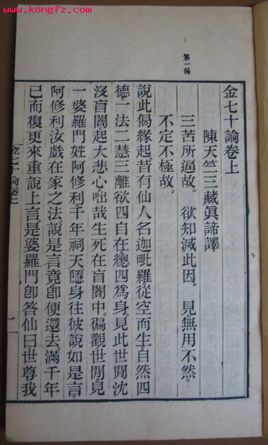 www.kongfz.com
金七十論卷上
陳天竺三藏眞諦譯
第一偈
三苦所逼故　欲知滅此因　見無用不然
不定不極故
說此偈緣起昔有仙人名迦毗羅從空而生自然四
德一法二慧三離欲四自在總四為身見此世間沈
沒盲闇起大悲心咄哉生死在盲闇中徧觀世間見
一婆羅門姓阿修利千年祠天隱身往彼說如是言
阿修利汝戲在家之法說是言竟卽便還去滿千年
已而復更來重說上言是婆羅門卽答仙曰世尊我
金七十論卷上
一